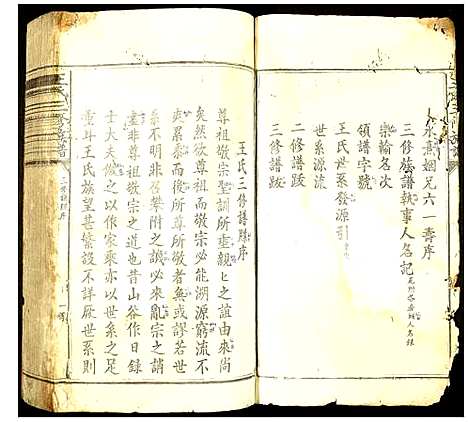 永嘉姻兄六一壽序
三修族譜執事人名記
樂輸名次
領譜字號
王氏世系發源引
世系源流
二修譜跋
三修譜跋
王氏三修譜牒序
尊祖敬宗聖訓所重親上之誼由來尚
矣然欲尊祖而敬宗必能溯源窮流不
爽累黍而後所尊所敬者無或謬若世
系不明非召攀附之誚必來亂宗之誚
殊非尊祖敬宗之道也昔山谷作日錄
士大夫倣之以作家乘亦以世系之足
重斗王氏族望甚繁設不詳厥世系則